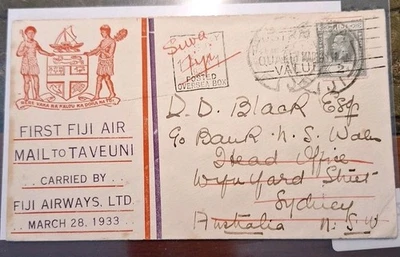 RERE VAKA NA KALOU KA DOKA NA TUI
FIRST FIJI AIR
MAIL TO TAVEUNI
CARRIED BY
FIJI AIRWAYS, LTD.
MARCH 28, 1933
Suva
Fiji
POSTED
OVERSEA BOX
VALUE
D. D. Black Esq
c/o Bank N. S. Wales
Head Office
Wynyard Street
Sydney
Australia N. S. W